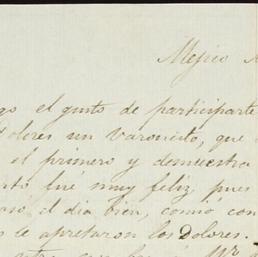 Mejico
go el gusto de participarte
Dolores un varoncito, que
el primero y demuestra
nto fué muy feliz, pues
asó el dia bien, comió con
s le apretaron los Dolores.